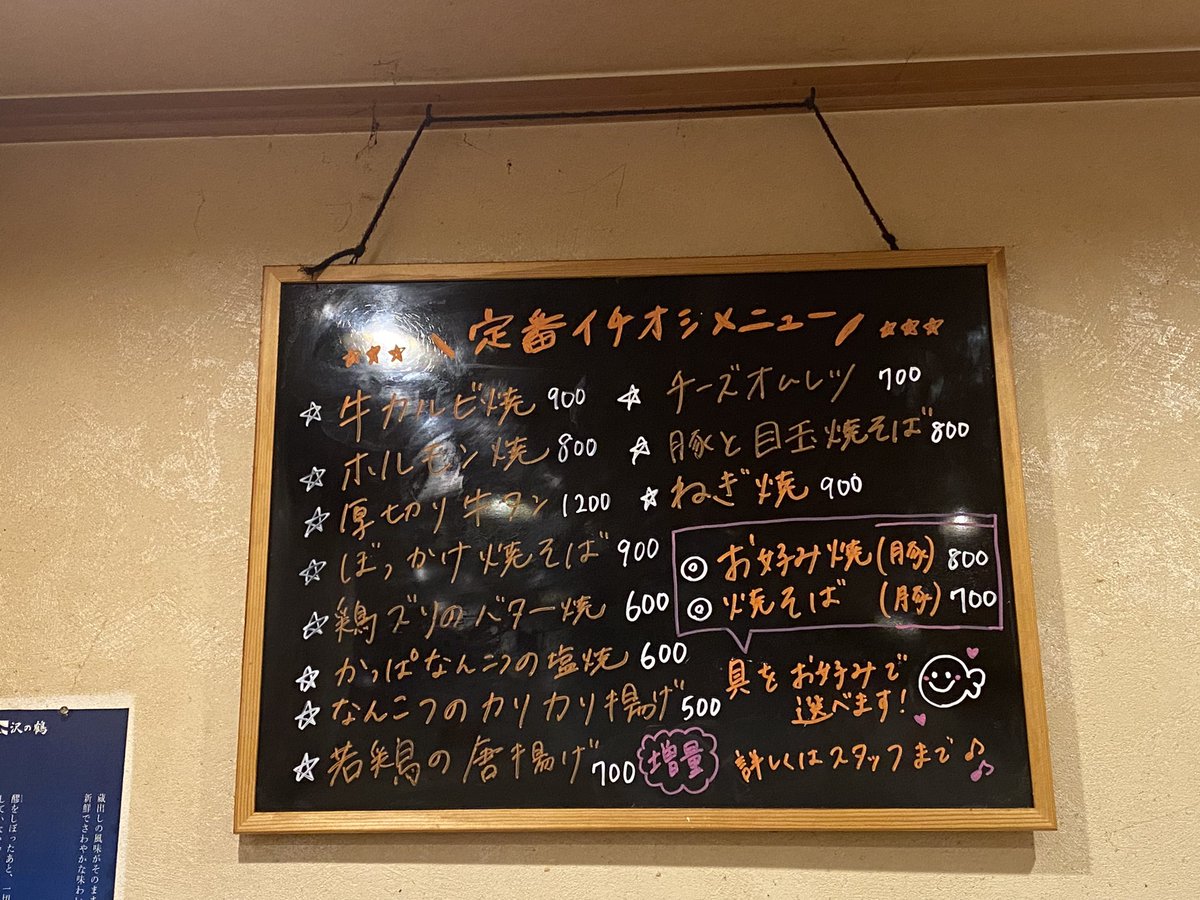 定番イチオシメニュー
☆ 牛カルビ焼 900
☆ ホルモン焼 800
☆ 厚切り牛タン 1200
☆ ぼっかけ焼そば 900
☆ 鶏ズリのバター焼 600
☆ かっぱなんこつの塩焼 600
☆ なんこつのカリカリ揚げ 500
☆ 若鶏の唐揚げ 700 増量
☆ チーズオムレツ 700
☆ 豚と目玉焼そば 800
☆ ねぎ焼 900
◎ お好み焼(豚) 800
◎ 焼そば (豚) 700
具をお好みで
選べます!
詳しくはスタッフまで♪♪
沢の鶴
蔵出しの風味がそのまま
新鮮でさわやかな味わい
醪をしぼったあと、一切